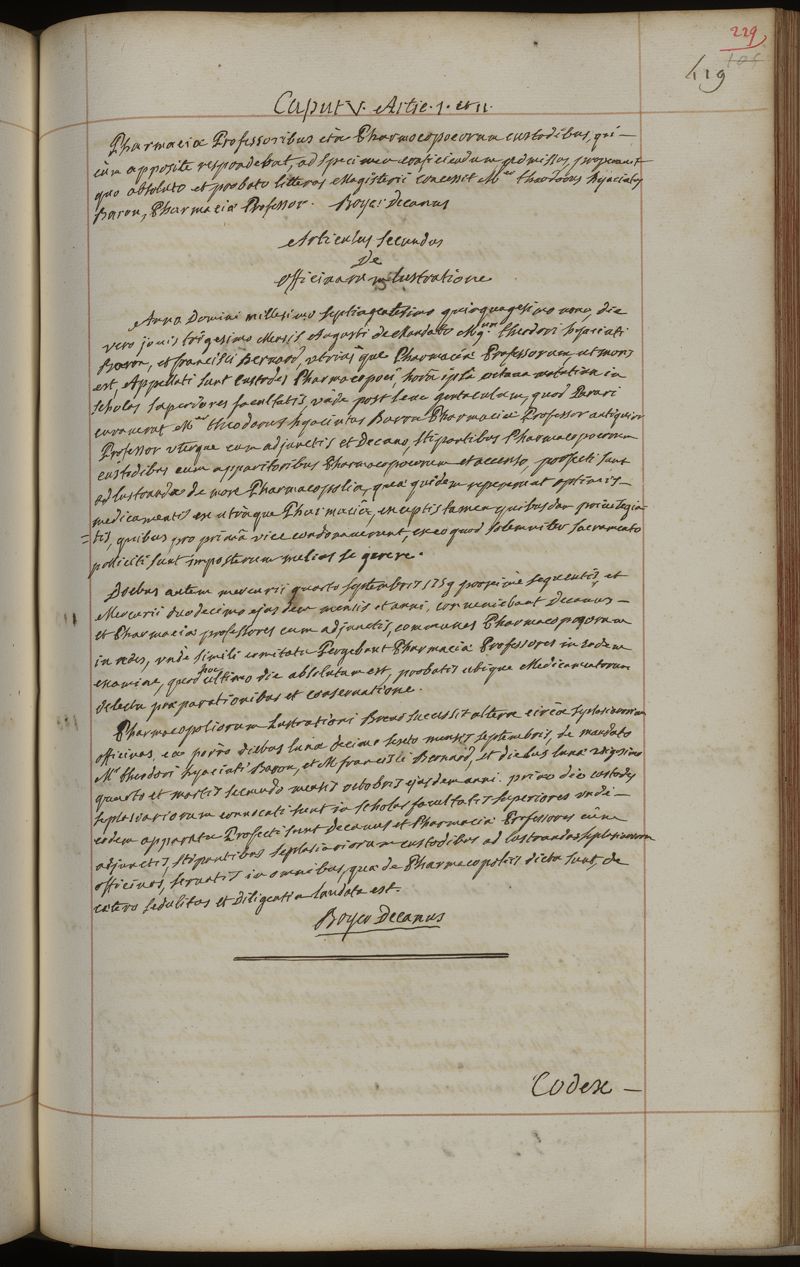 229
105
419
Caput V. Artic. 1. et II.
Pharmaciæ Professoribus et à Pharmacopoeorum custodibus, qui—
cùm apposite respondebat, ad specimen conficiendum admissus,
quo absoluto et probato litteras Magisterii concessit Mer theodorus hyacintus
Baron, Pharmaciæ Professor. Boyer Decanus
Articulus Secundus
De
officinarum lustratione
Anno Domini millesimo septingentesimo quinquagesimo nono, die
vero jovis trigesimo Mensis Augusti de Mandato Mgrum Theodori hyacinti
Baron, et francisci Bernard, utriusque Pharmaciæ Professorum, ut moris
est, Appellati sunt Custodes Pharmacopoei, horâ ipsâ octava matutina in
scholas superiores facultatis, unde post leve gentaculum, quod Parari
curaverat Mer theodorus hyacintus Baron Pharmaciæ Professor antiquior
Professor uterque cum adjunctis et Decano, stipantibus Pharmacopoeorum
custodibus cum apparitoribus Pharmacopoeorum et accenso, profecti sunt
ad lustranda de more Pharmacopolia, quæ quidem repererunt optimis—
medicamentis ex utrâque Pharmaciâ, exceptis tamen quibusdam
=tis, quibus pro primâ vice condonaverunt, ex eo quod solemniter sacramento
polliciti sunt imposterum melius se gerere.
Diebus autem mercurii quarto septembris 1759 proximè sequentis, et
Mercurii duodecimo ejusdem mensis et anni, conveniebant Decanus—
et Pharmaciæ professores cum adjunctis, communes Pharmacopoeorum
in ædes, unde simili comitatu Pergebant Pharmaciæ Professores in eodem
examine, quod hac ultimo die absolutum est, probatis ubique Medicamentorum
delectu præparationibus et conservatione.
Pharmacopoliorum Lustrationi Brevi successit altera circa seplasiariorum
officinas, ea porro diebus lunæ decimo sexto mensis septembris, de mandato
Mri theodori hyacinti Baron, et M francisci Bernard, et diebus lunæ vigesimo
quarto et martis secundo mensis octobris ejusdem anni. primo die custodes
seplasiariorum convocati sunt in scholas facultatis superiores unde—
eodem apparatu Profecti sunt Decanus et Pharmaciæ Professores cùm
adjunctis, stipantibus seplasiariorum custodibus ad lustrandas seplasiariorum
officinas, servatis in omnibus, quæ de Pharmacopoliis dicta sunt, de
cætero sedulitas et Diligentia laudata est.
Boyer Decanus
Codex —